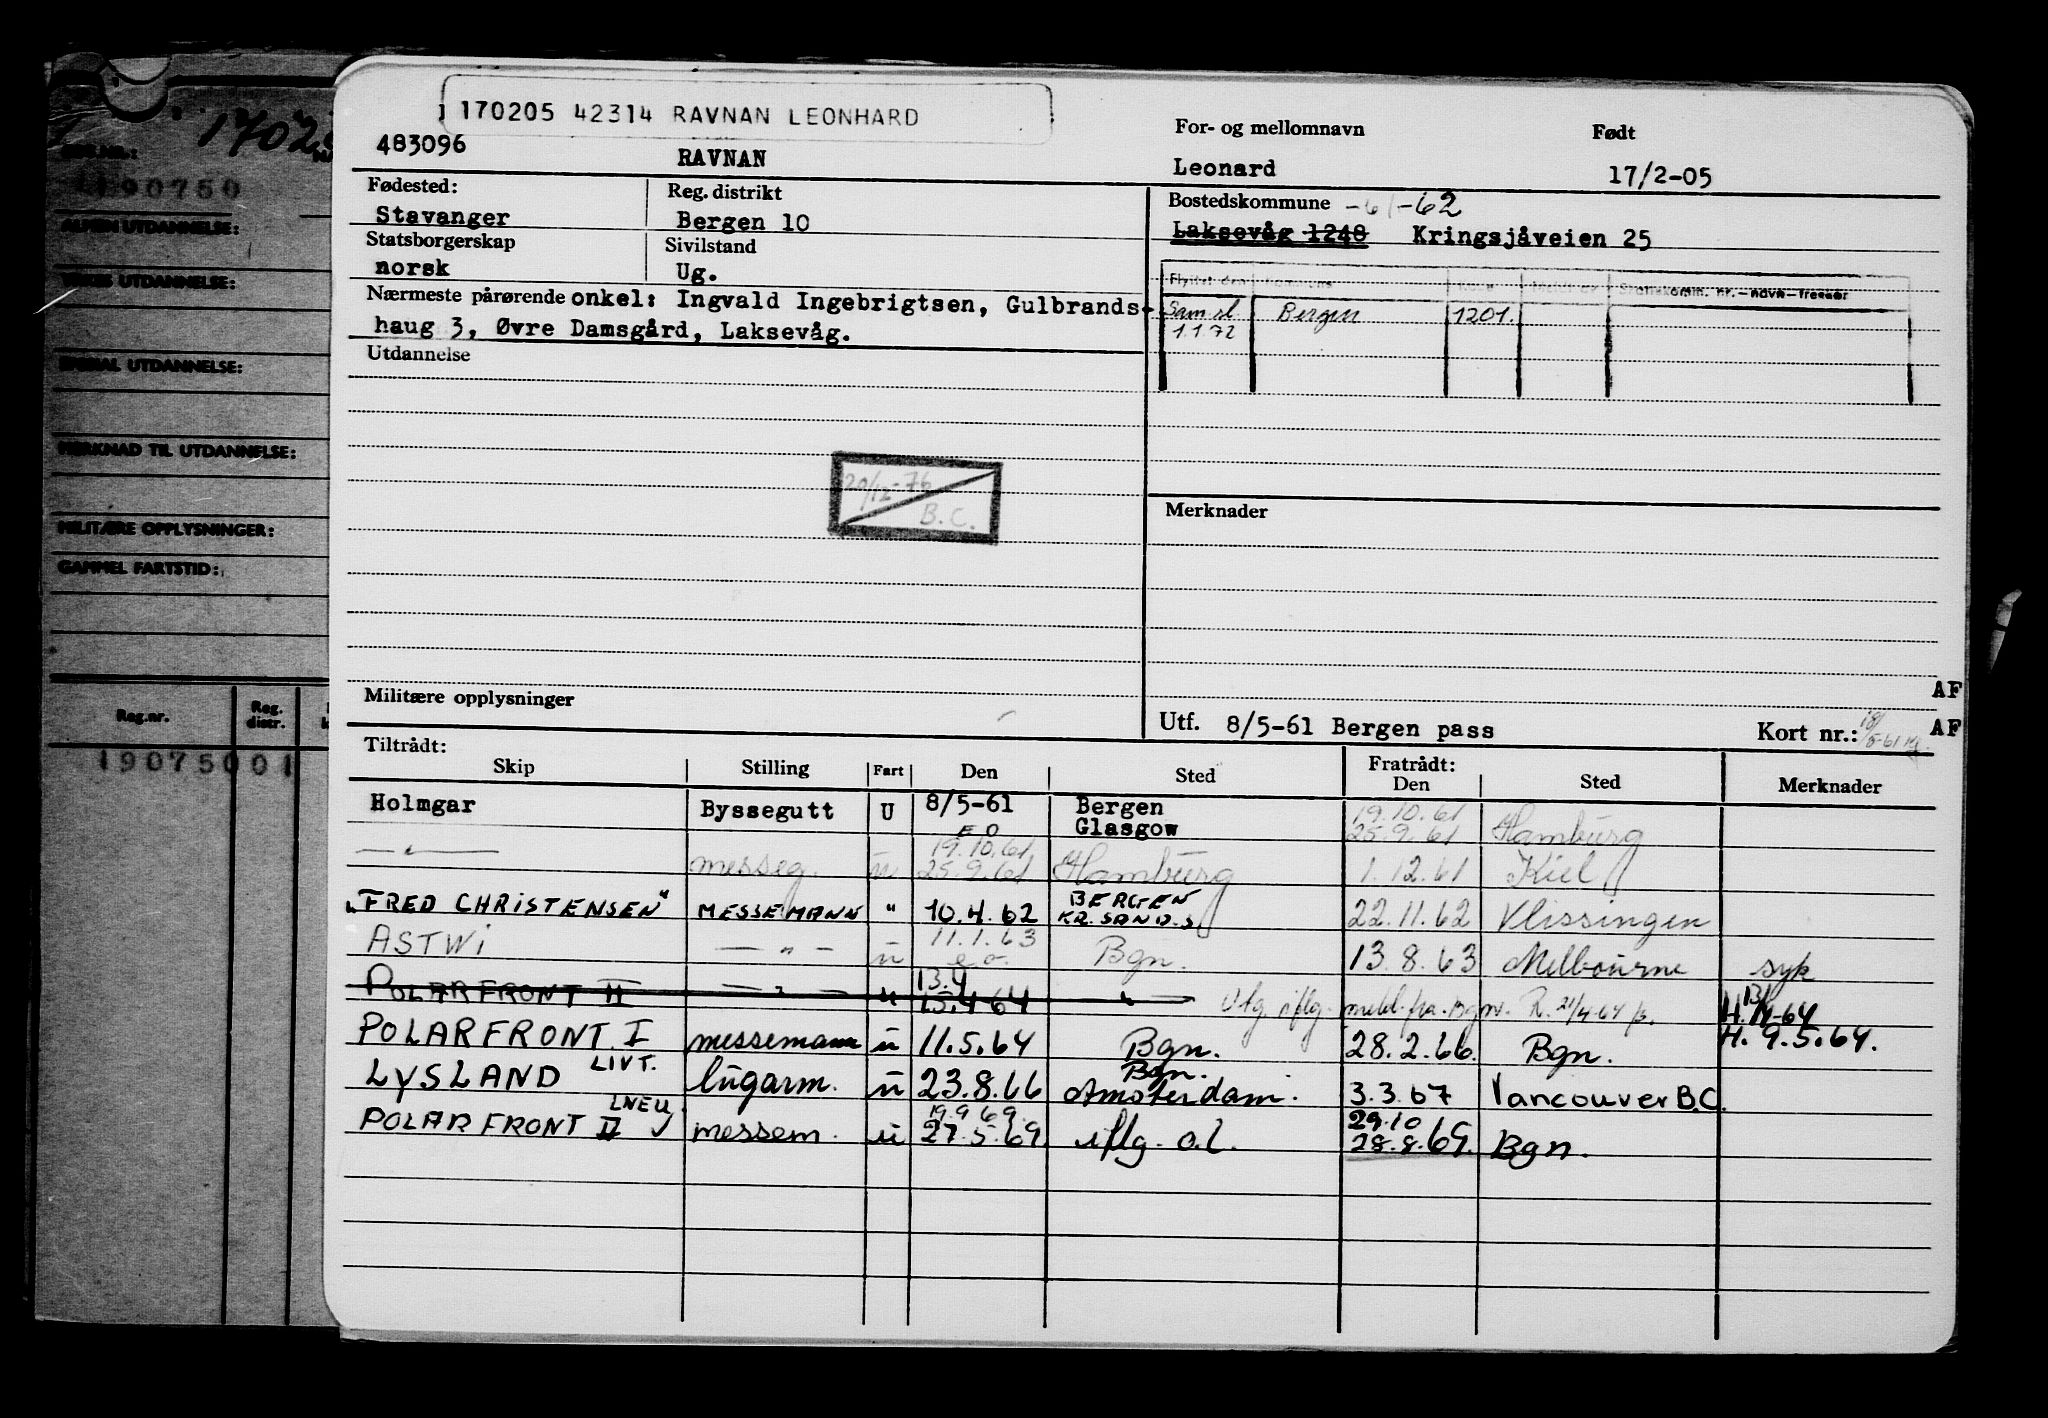 170205 42314 RAVNAN LEONHARD
483096 RAVNAN
For- og mellomnavn Født
Leonard 17/2-05
Fødested: Reg. distrikt
Stavanger Bergen 10
Statsborgerskap Sivilstand
norsk Ug.
Nærmeste pårørende onkel: Ingvald Ingebrigtsen, Gulbrands-
haug 3, Øvre Damsgård, Laksevåg.
Utdannelse
20/12-76
B.C.
Militære opplysninger
Bostedskommune -61-62
Laksevåg 1248 Kringsjåveien 25
Flyttet den kommune
Sam.sl. Bergen 1201.
1.1.72
Merknader
AF
Utf. 8/5-61 Bergen pass Kort nr.: AF
Tiltrådt: Fratrådt:
Skip Stilling Fart Den Sted Den Sted Merknader
Holmgar Byssegutt U 8/5-61 Bergen 19.10.61
Glasgow 25.9.61 Hamburg
F O
19.10.61
—"— messeg. u 25.9.61 Hamburg 1.12.61 Kiel
"FRED CHRISTENSEN" MESSEMANN " 10.4.62 BERGEN KR.SAND.S 22.11.62 Vlissingen
ASTWI —"— u 11.1.63 e.o. Bgn. 13.8.63 Melbourne syk
POLARFRONT II —"— " 13.4 15.4 64 —"— Utg. iflg. meld. fra Bgn. R. 21/4-64
POLARFRONT I messemann u 11.5.64 Bgn. 28.2.66. Bgn. H. 9.5.64.
LIVT. Bgn.
LYSLAND lugarm. u 23.8.66 Amsterdam. 3.3.67 Vancouver B.C.
LNEU 19.9 69. 29.10
POLARFRONT II messem. u 27.5.69. iflg. o.l. 28.8.69. Bgn.
1702
190750
ALMEN UTDANNELSE:
YRKES UTDANNELSE:
SPESIAL UTDANNELSE:
MERKNAD TIL UTDANNELSE:
MILITÆRE OPPLYSNINGER:
GAMMEL FARTSTID:
Reg.nr. Reg. distr.
19075001